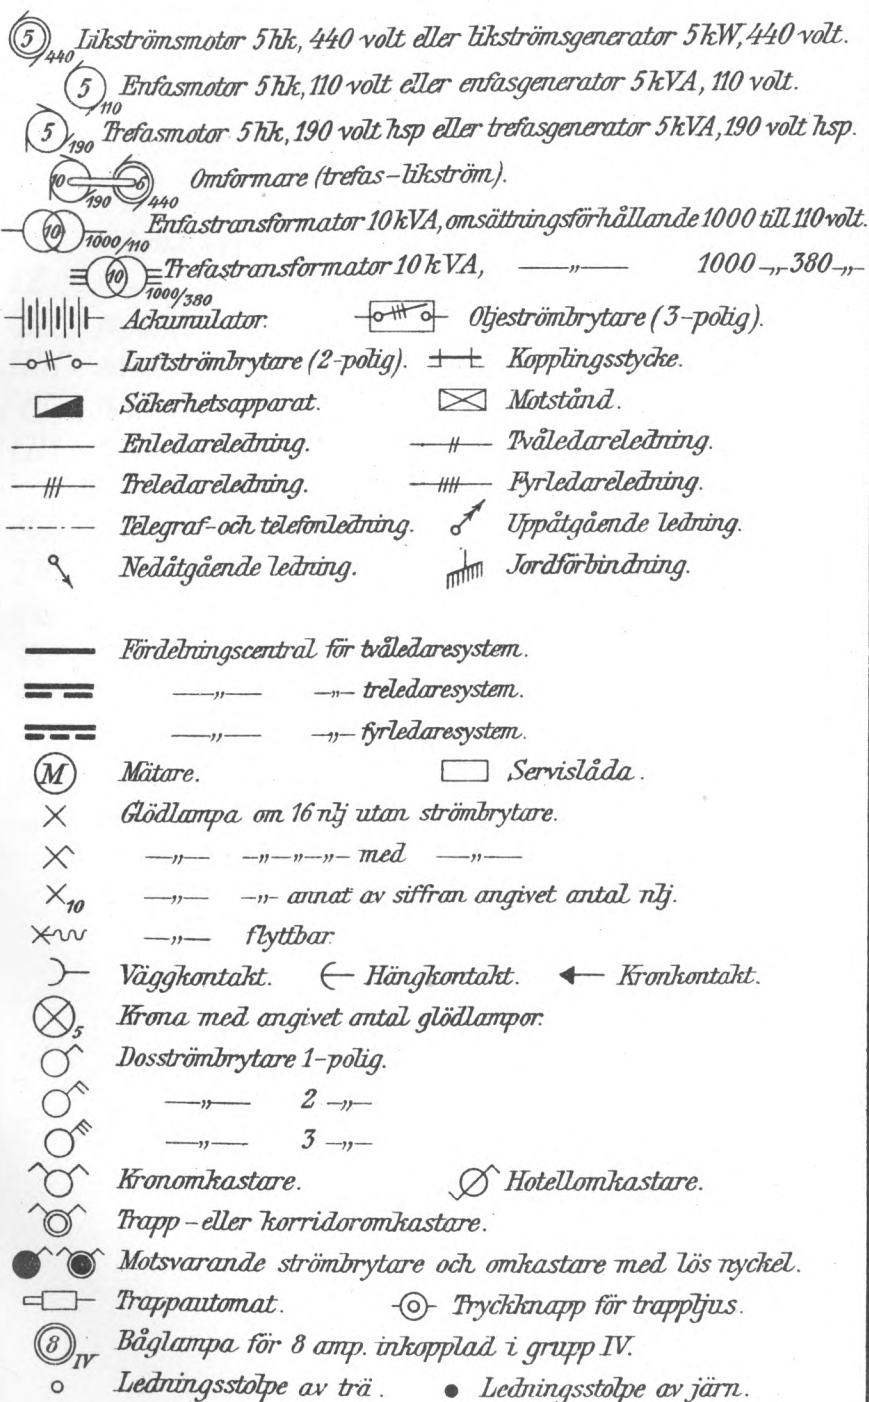 5/440 Likströmsmotor 5 hk, 440 volt eller likströmsgenerator 5 kW, 440 volt.
5/110 Enfasmotor 5 hk, 110 volt eller enfasgenerator 5 kVA, 110 volt.
5/190 Trefasmotor 5 hk, 190 volt hsp eller trefasgenerator 5 kVA, 190 volt hsp.
10/190 6/440 Omformare (trefas-likström).
10 1000/110 Enfastransformator 10 kVA, omsättningsförhållande 1000 till 110 volt.
10 1000/380 Trefastransformator 10 kVA, —„— 1000 -„- 380 -„-
Ackumulator. Oljeströmbrytare (3-polig).
Luftströmbrytare (2-polig). Kopplingsstycke.
Säkerhetsapparat. Motstånd.
Enledareledning. Tvåledareledning.
Treledareledning. Fyrledareledning.
Telegraf- och telefonledning. Uppåtgående ledning.
Nedåtgående ledning. Jordförbindning.
Fördelningscentral för tvåledaresystem.
—„— -„- treledaresystem.
—„— -„- fyrledaresystem.
M Mätare. Servislåda.
Glödlampa om 16 nlj utan strömbrytare.
—„— -„-„-„- med —„—
10 —„— -„- annat av siffran angivet antal nlj.
—„— flyttbar.
Väggkontakt. Hängkontakt. Kronkontakt.
5 Krona med angivet antal glödlampor.
Dosströmbrytare 1-polig.
—„— 2 -„-
—„— 3 -„-
Kronomkastare. Hotellomkastare.
Trapp- eller korridoromkastare.
Motsvarande strömbrytare och omkastare med lös nyckel.
Trappautomat. Tryckknapp för trappljus.
8 IV Båglampa för 8 amp. inkopplad i grupp IV.
Ledningsstolpe av trä. Ledningsstolpe av järn.